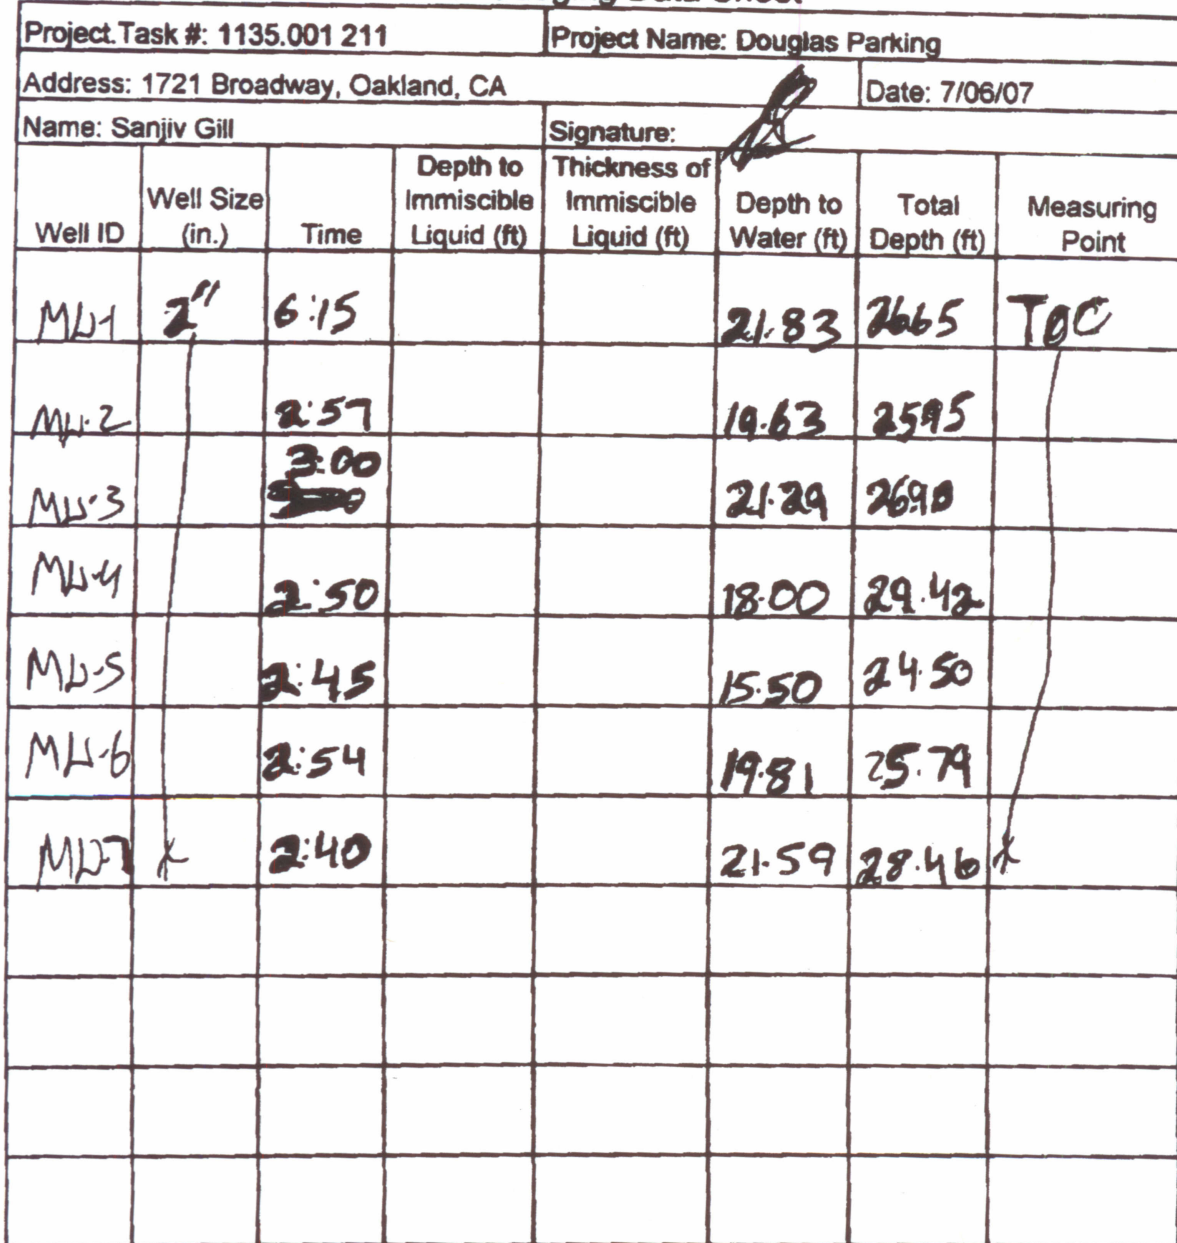 Data Sheet
Project.Task #: 1135.001 211 Project Name: Douglas Parking
Address: 1721 Broadway, Oakland, CA Date: 7/06/07
Name: Sanjiv Gill Signature:
Well ID Well Size (in.) Time Depth to Immiscible Liquid (ft) Thickness of Immiscible Liquid (ft) Depth to Water (ft) Total Depth (ft) Measuring Point
MW-1 2" 6:15 21.83 26.65 TOC
MW-2 2:57 19.63 25.95
MW-3 3:00 21.29 26.90
MW-4 2:50 18.00 29.42
MW-5 2:45 15.50 24.50
MW-6 2:54 19.81 25.79
MW-7 2:40 21.59 28.46